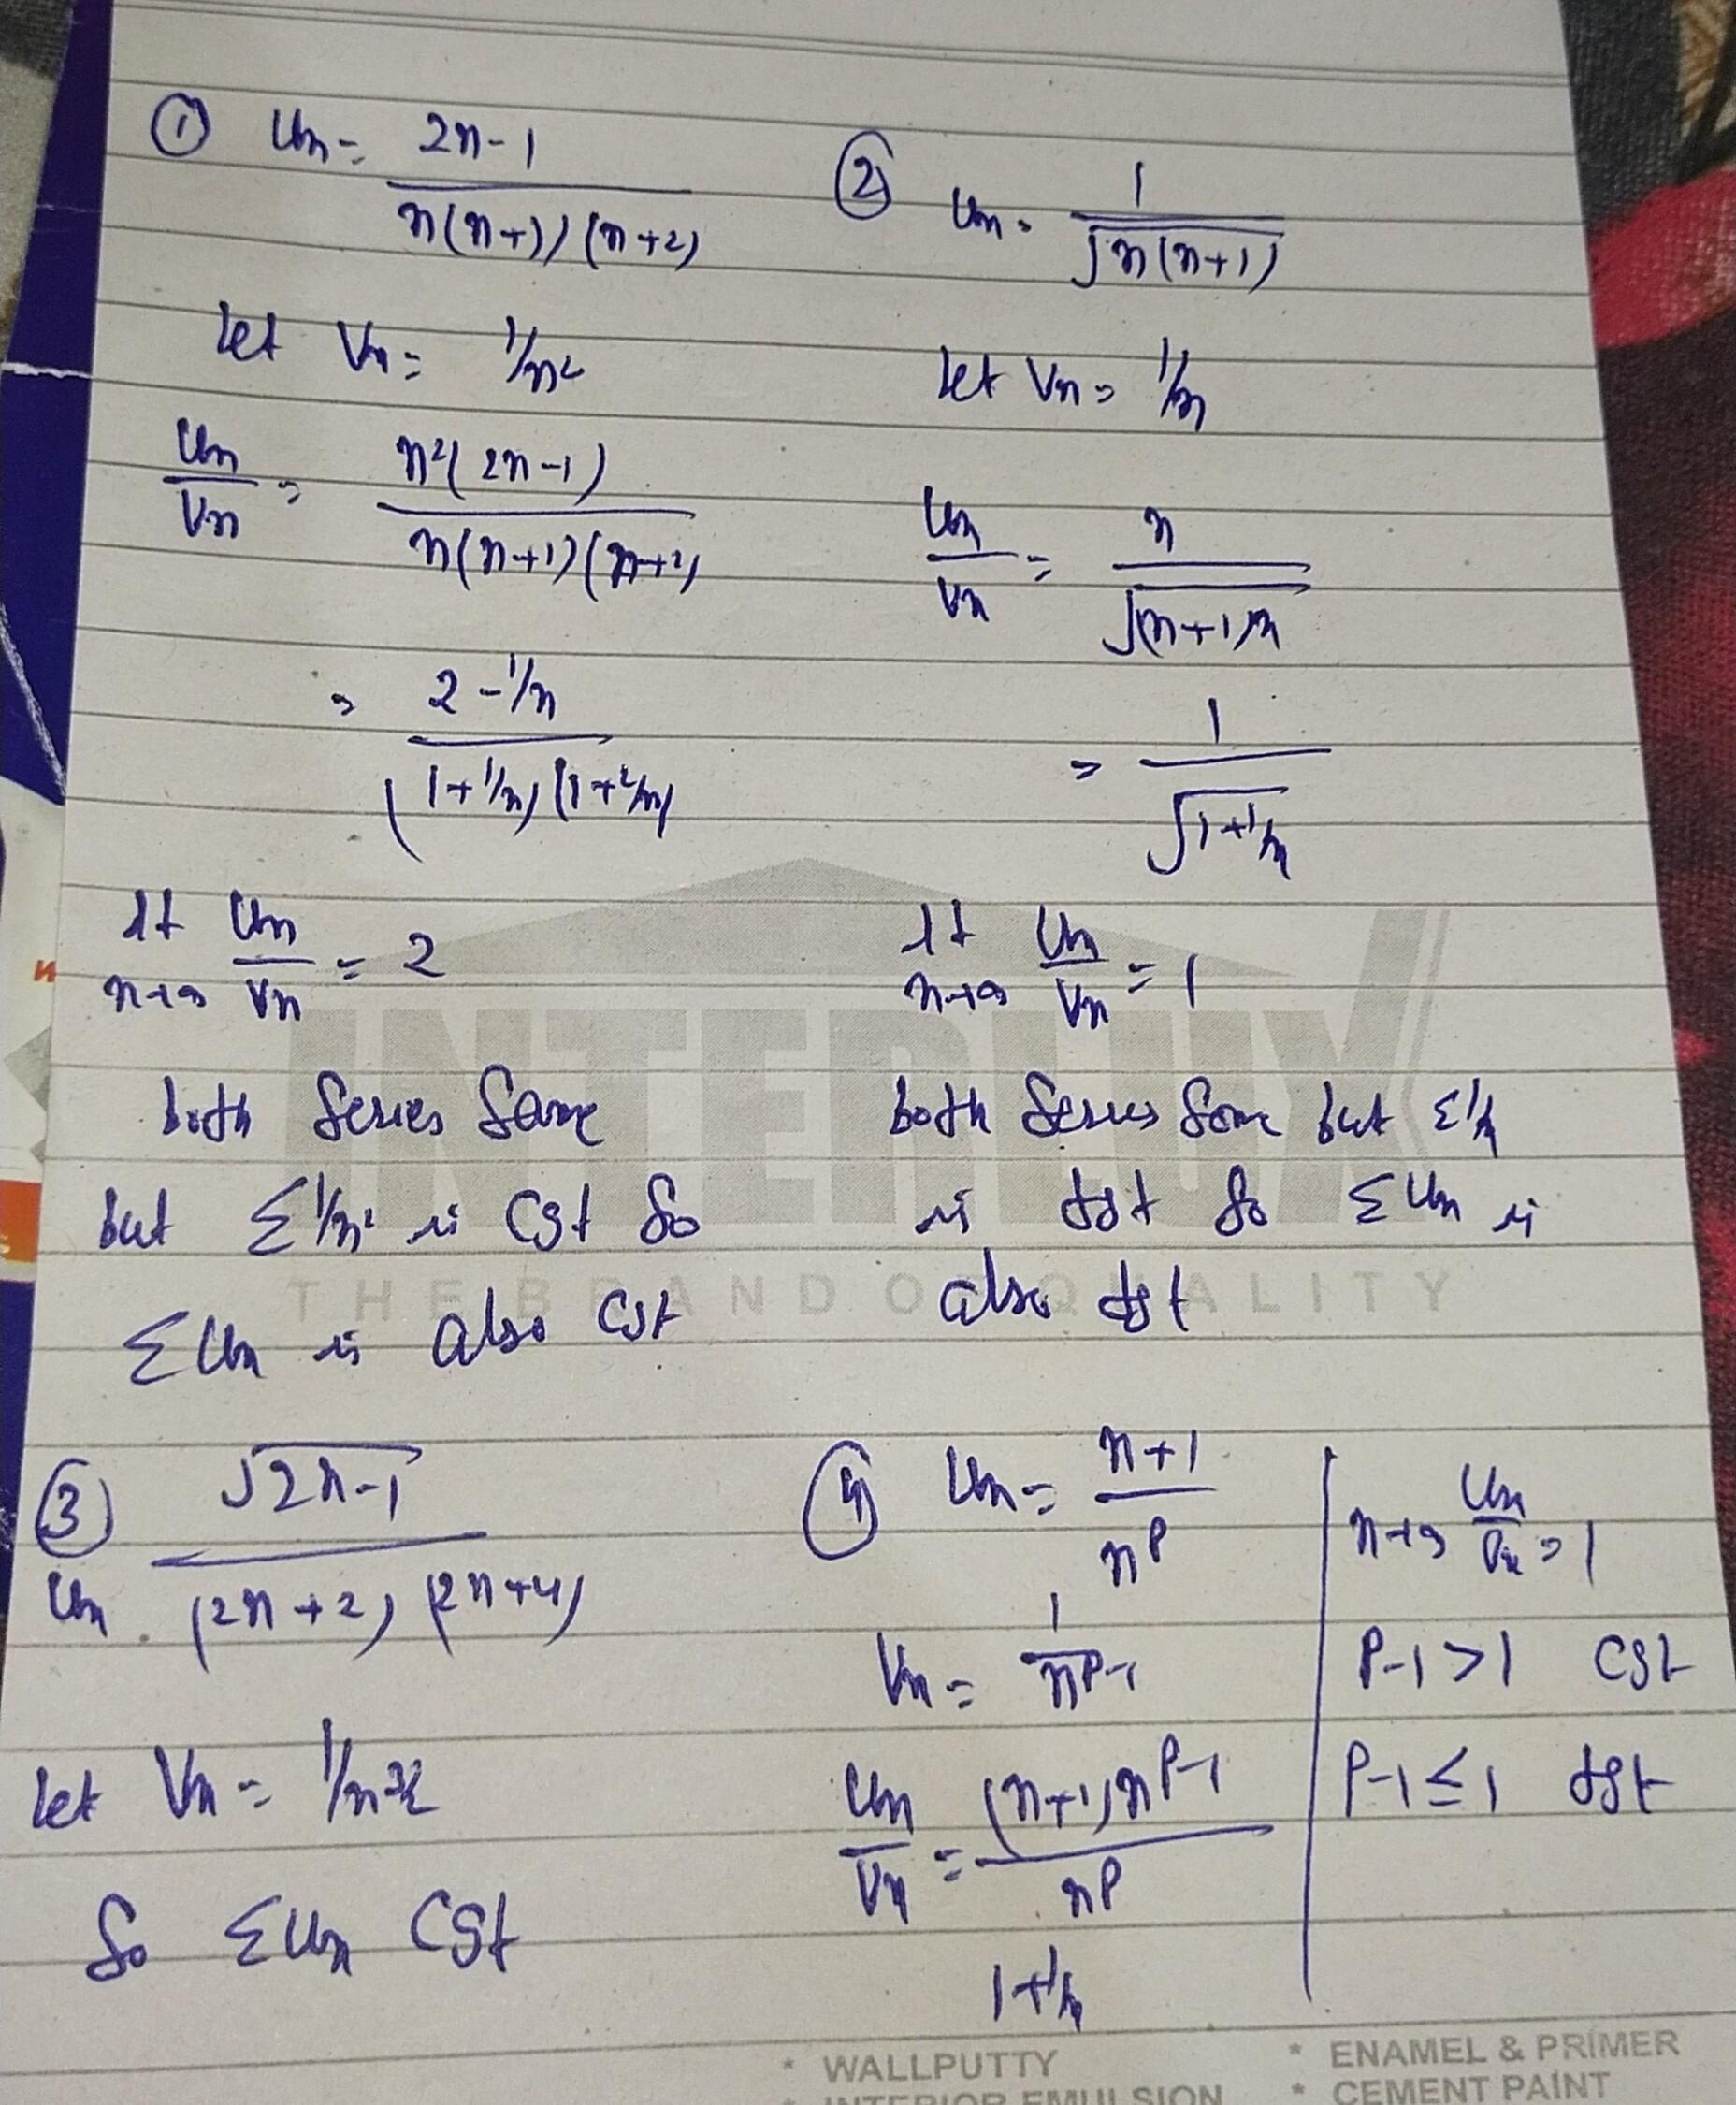 ① Un = 2n-1
n(n+1)(n+2)
let Vn = 1/n²
Un/Vn = n²(2n-1)
n(n+1)(n+2)
= 2-1/n
(1+1/n)(1+2/n)
lt Un/Vn = 2
n→∞
both Series Same
but Σ1/n² is Cgt So
ΣUn is also Cgt
② Un = 1
√n(n+1)
let Vn = 1/n
Un/Vn = n
√(n+1)n
= 1
√1+1/n
lt Un/Vn = 1
n→∞
both Series Same but Σ1/n
is dgt So ΣUn is
also dgt
③ √2n-1
Un = (2n+2)(2n+4)
let Vn = 1/n^3/2
So ΣUn Cgt
④ Un = n+1
n^p
Vn = 1
n^p-1
Un/Vn = (n+1)n^p-1
n^p
1+1/n
n→∞ Un/Vn = 1
P-1>1 Cgt
P-1≤1 dgt
INTERLUX
THE BRAND OF QUALITY
* WALLPUTTY
* INTERIOR EMULSION
* ENAMEL & PRIMER
* CEMENT PAINT